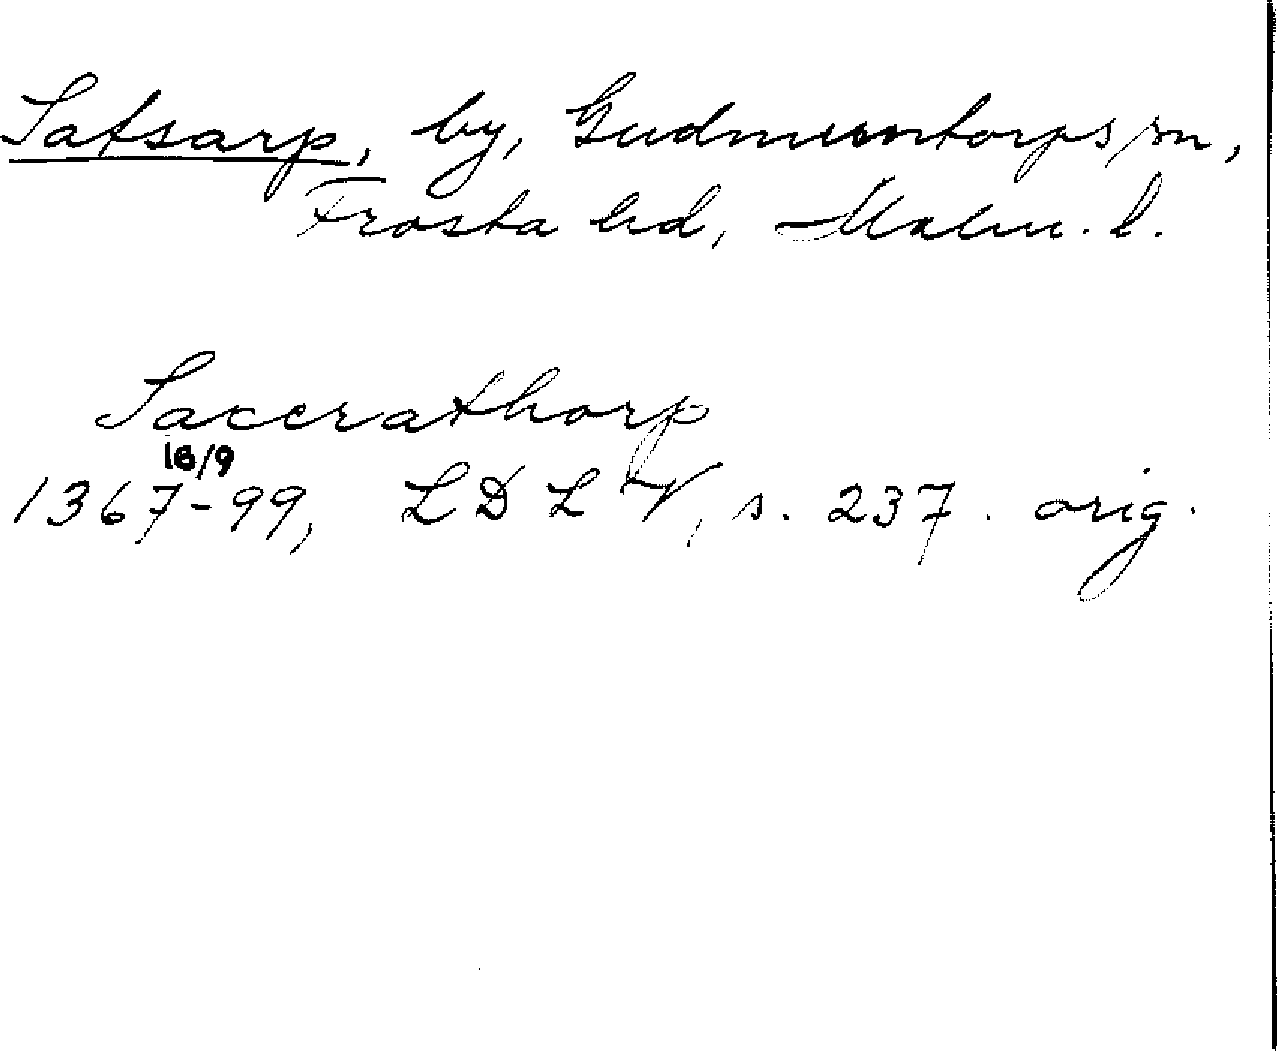 Satsarp, by, Gudmuntorps sn,
Frosta hd, Malm. l.
Saccrathorp
16/9
1367-99, LDLV, s. 237. orig.